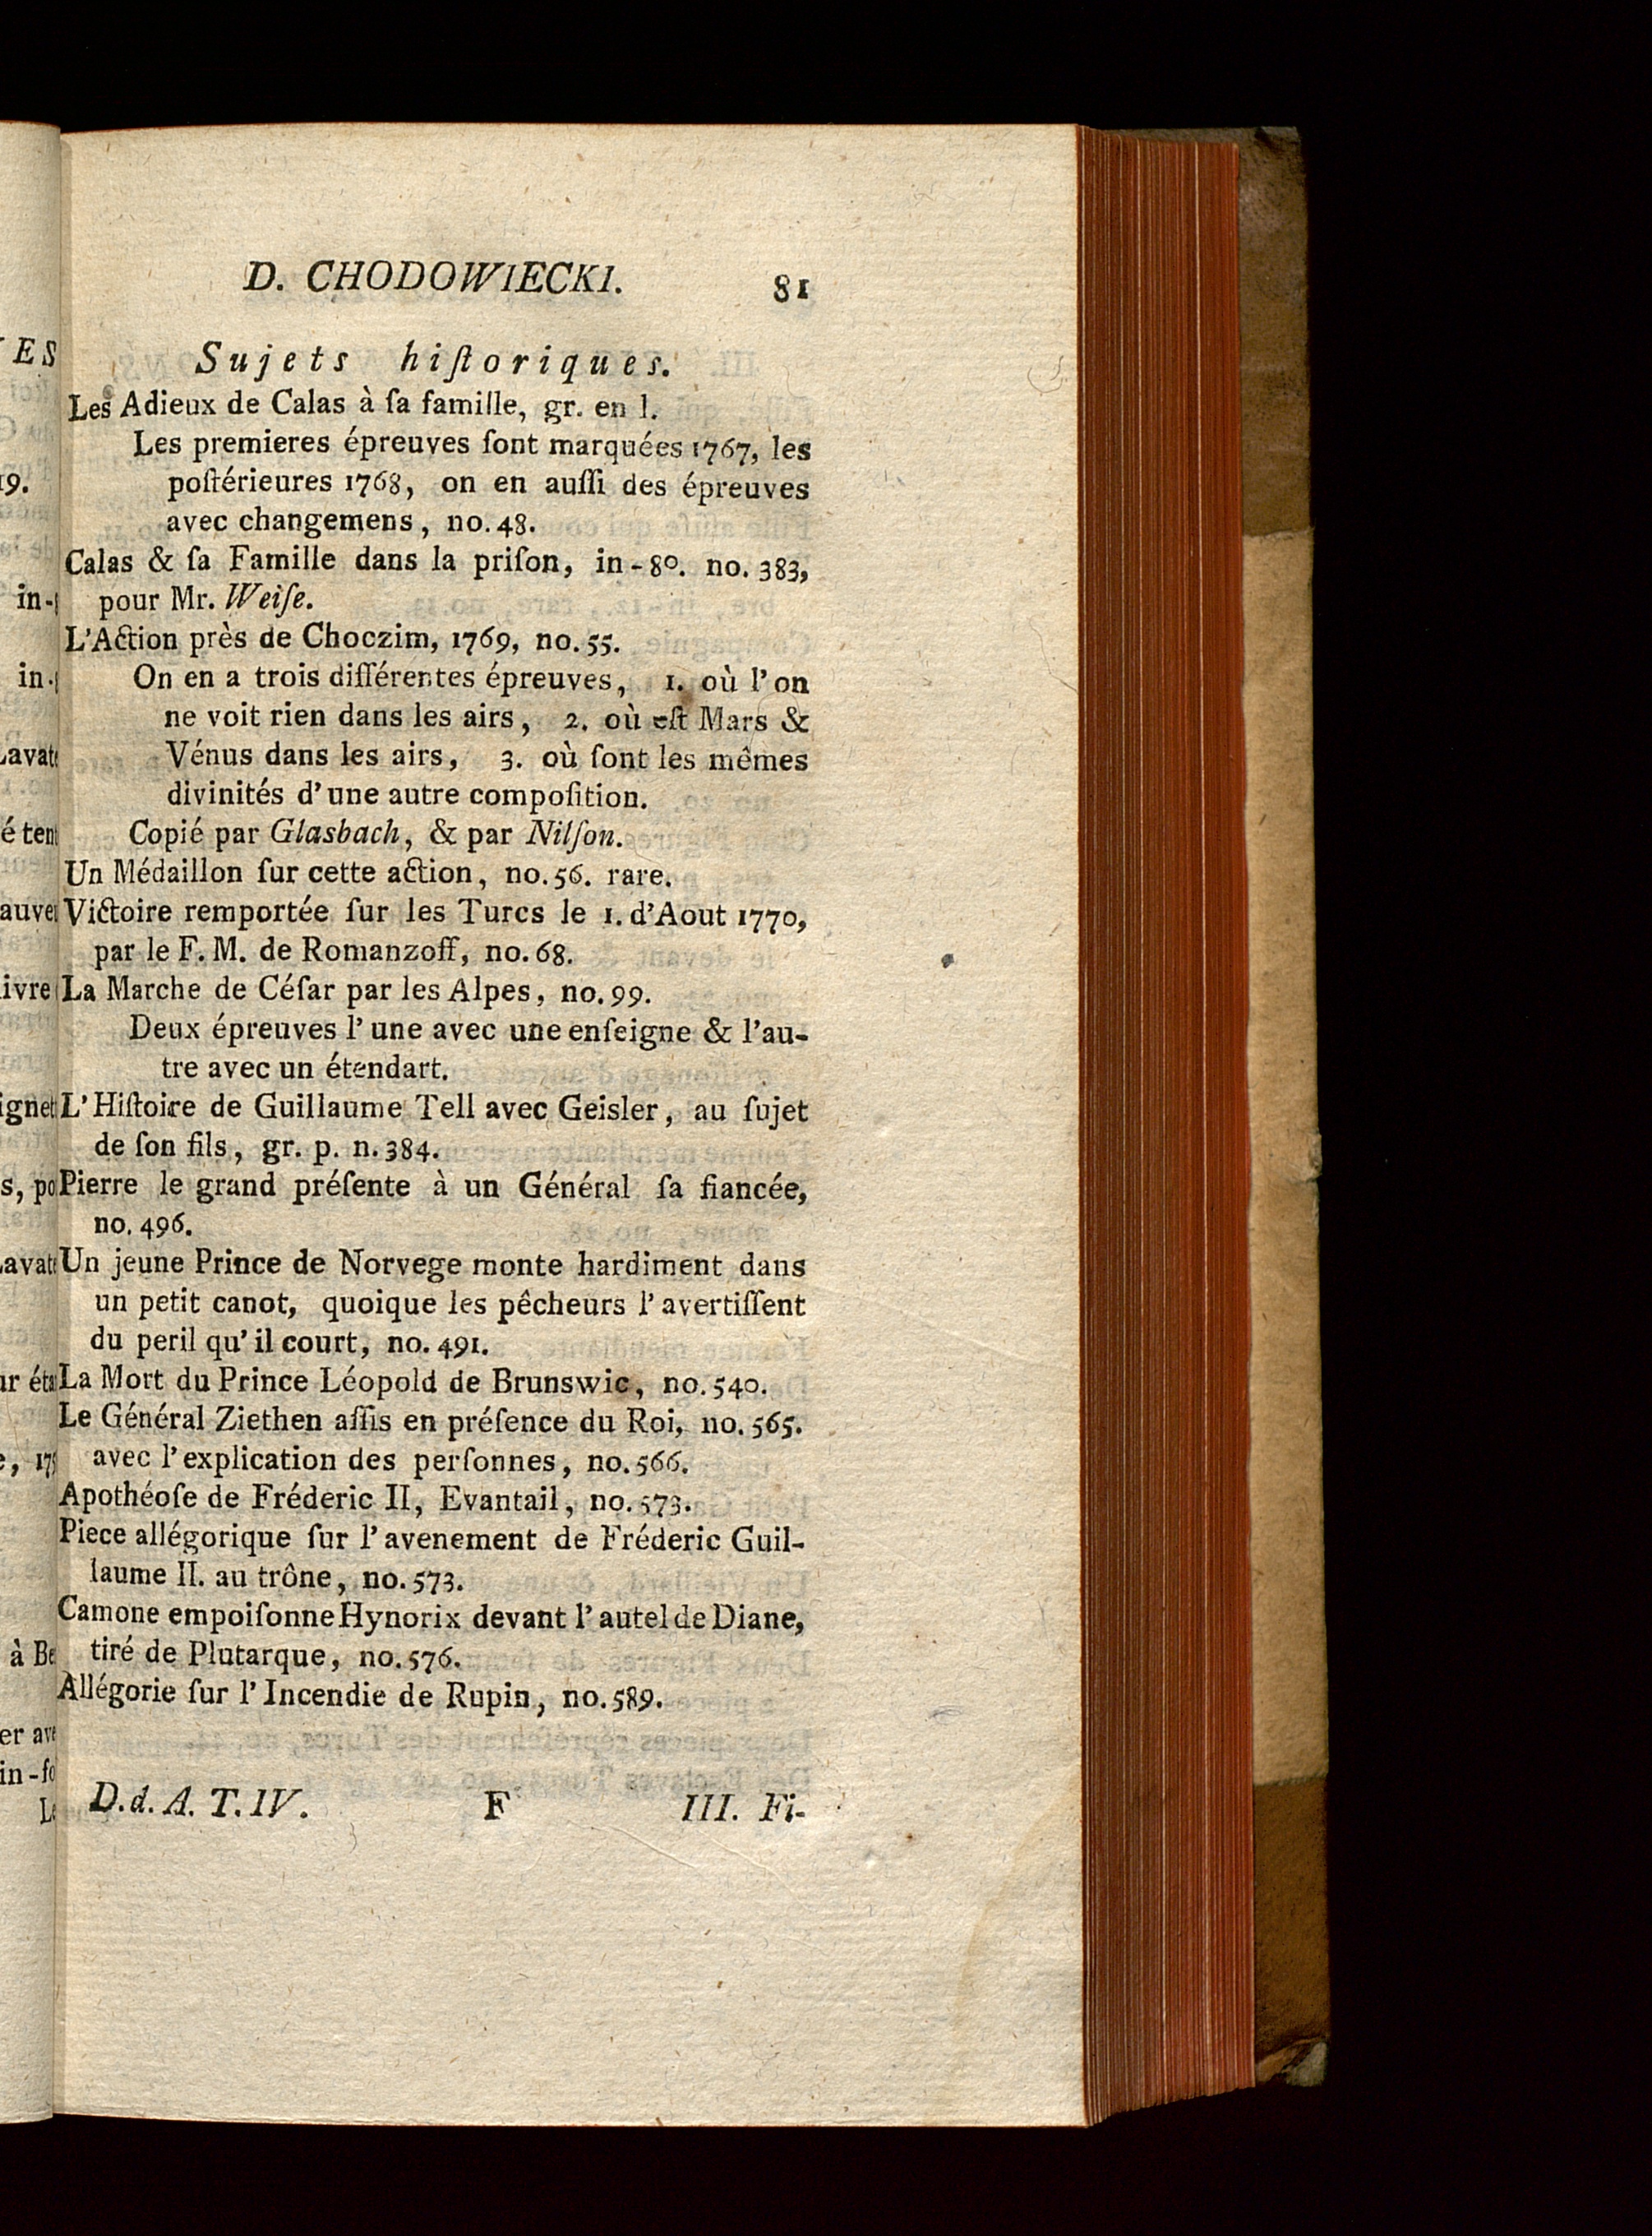 D. CHODOWIECKI. 81
Sujets hiſtoriques.
Les Adieux de Calas à ſa famille, gr. en l.
Les premieres épreuves ſont marquées 1767, les
poſtérieures 1768, on en auſſi des épreuves
avec changemens, no. 48.
Calas & ſa Famille dans la priſon, in-8º. no. 383,
pour Mr. Weiſe.
L'Action près de Choczim, 1769, no. 55.
On en a trois différentes épreuves, 1. où l'on
ne voit rien dans les airs, 2. où eſt Mars &
Vénus dans les airs, 3. où ſont les mêmes
divinités d'une autre compoſition.
Copié par Glasbach, & par Nilſon.
Un Médaillon ſur cette action, no. 56. rare.
Victoire remportée ſur les Turcs le 1. d'Aout 1770,
par le F. M. de Romanzoff, no. 68.
La Marche de Céſar par les Alpes, no. 99.
Deux épreuves l'une avec une enſeigne & l'au-
tre avec un étendart.
L'Hiſtoire de Guillaume Tell avec Geisler, au ſujet
de ſon fils, gr. p. n. 384.
Pierre le grand préſente à un Général ſa fiancée,
no. 496.
Un jeune Prince de Norvege monte hardiment dans
un petit canot, quoique les pêcheurs l'avertiſſent
du peril qu'il court, no. 491.
La Mort du Prince Léopold de Brunswic, no. 540.
Le Général Ziethen aſſis en préſence du Roi, no. 565.
avec l'explication des perſonnes, no. 566.
Apothéoſe de Fréderic II, Evantail, no. 573.
Piece allégorique ſur l'avenement de Fréderic Guil-
laume II. au trône, no. 573.
Camone empoiſonne Hynorix devant l'autel de Diane,
tiré de Plutarque, no. 576.
Allégorie ſur l'Incendie de Rupin, no. 589.
D. d. A. T. IV. F III. Fi-